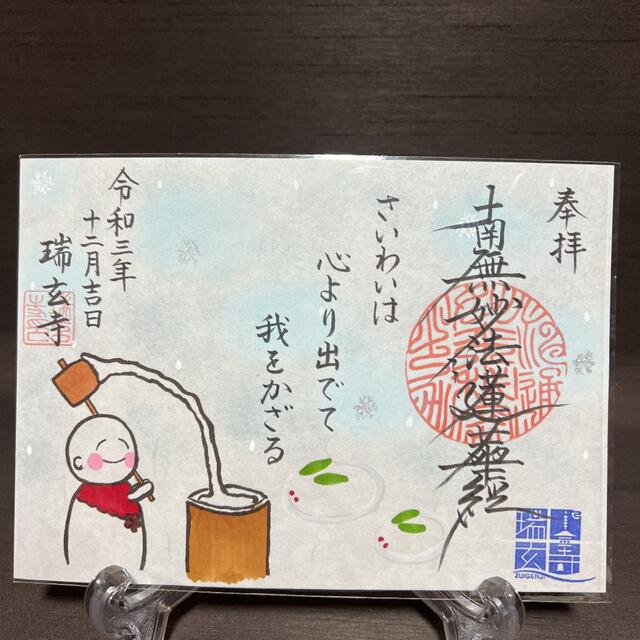 奉拝
南無妙法蓮華経
さいわいは
心より出でて
我をかざる
令和三年
十二月吉日
瑞玄寺
瑞玄寺
ZUIGENJI